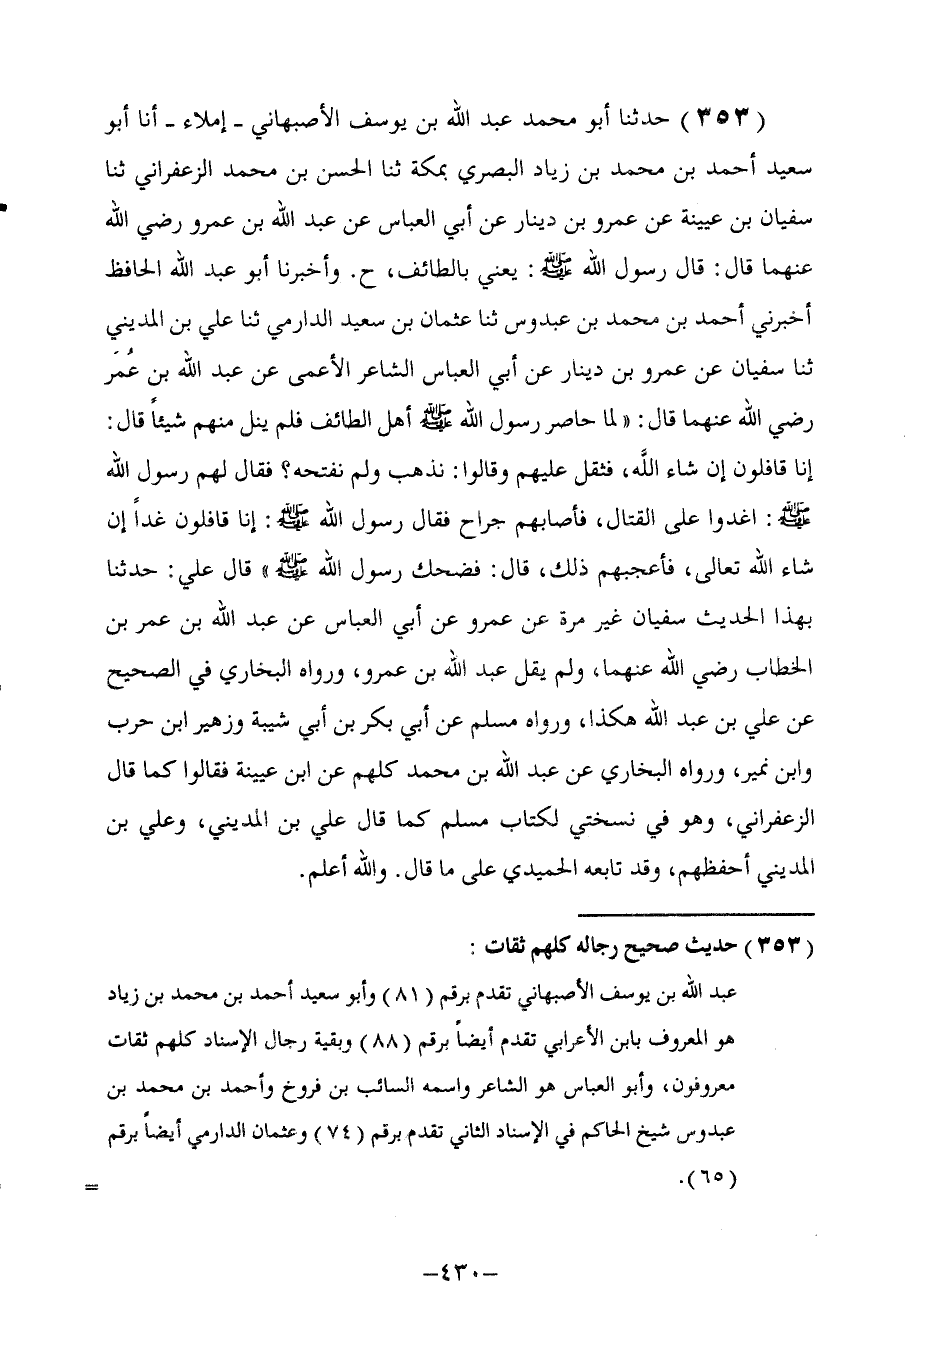 (٣٥٣) حدثنا أبو محمد عبد الله بن يوسف الأصبهاني ـ إملاء ـ أنا أبو
سعيد أحمد بن محمد بن زياد البصري بمكة ثنا الحسن بن محمد الزعفراني ثنا
سفيان بن عيينة عن عمرو بن دينار عن أبي العباس عن عبد الله بن عمرو رضي الله
عنهما قال: قال رسول الله ﷺ: يعني بالطائف، ح. وأخبرنا أبو عبد الله الحافظ
أخبرني أحمد بن محمد بن عبدوس ثنا عثمان بن سعيد الدارمي ثنا علي بن المديني
ثنا سفيان عن عمرو بن دينار عن أبي العباس الشاعر الأعمى عن عبد الله بن عُمَر
رضي الله عنهما قال: «لما حاصر رسول الله ﷺ أهل الطائف فلم ينل منهم شيئاً قال:
إنا قافلون إن شاء اللَّه، فثقل عليهم وقالوا: نذهب ولم نفتحه؟ فقال لهم رسول الله
ﷺ: اغدوا على القتال، فأصابهم جراح فقال رسول الله ﷺ: إنا قافلون غداً إن
شاء الله تعالى، فأعجبهم ذلك، قال: فضحك رسول الله ﷺ» قال علي: حدثنا
بهذا الحديث سفيان غير مرة عن عمرو عن أبي العباس عن عبد الله بن عمر بن
الخطاب رضي الله عنهما، ولم يقل عبد الله بن عمرو، ورواه البخاري في الصحيح
عن علي بن عبد الله هكذا، ورواه مسلم عن أبي بكر بن أبي شيبة وزهير ابن حرب
وابن نمير، ورواه البخاري عن عبد الله بن محمد كلهم عن ابن عيينة فقالوا كما قال
الزعفراني، وهو في نسختي لكتاب مسلم كما قال علي بن المديني، وعلي بن
المديني أحفظهم، وقد تابعه الحميدي على ما قال. والله أعلم.
(٣٥٣) حديث صحيح رجاله كلهم ثقات:
عبد الله بن يوسف الأصبهاني تقدم برقم (٨١) وأبو سعيد أحمد بن محمد بن زياد
هو المعروف بابن الأعرابي تقدم أيضاً برقم (٨٨) وبقية رجال الإسناد كلهم ثقات
معروفون، وأبو العباس هو الشاعر واسمه السائب بن فروخ وأحمد بن محمد بن
عبدوس شيخ الحاكم في الإسناد الثاني تقدم برقم (٧٤) وعثمان الدارمي أيضاً برقم
(٦٥). =
-٤٣٠-